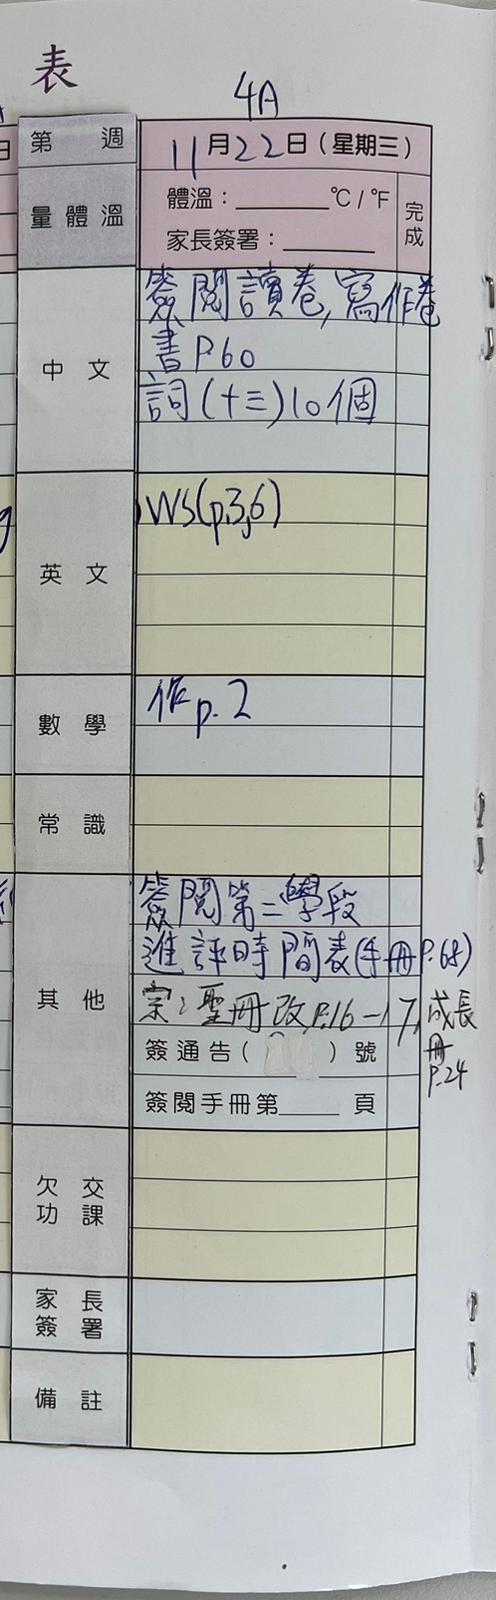 表
4A
第 週
11月22日(星期三)
量體溫
體溫：________°C / °F
家長簽署：________
完成
中文
簽閱讀卷,寫作卷
書P.60
詞(十三)10個
英文
WS(p.3,6)
數學
作p.2
常識
其他
簽閱第二學段
進評時間表(手冊P.68)
宗：聖冊改P.16-17,成長
冊
P.24
簽通告( )號
簽閱手冊第____頁
欠交
功課
家長
簽署
備註